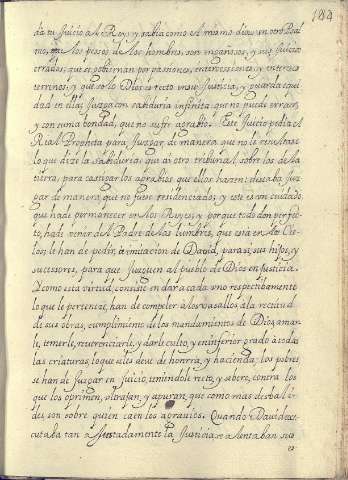 184
da tu Juicio al Rey; y sabia como el mismo dize en otro Psal
mo, que los pesos de los hombres, son engañosos, y sus Juicios
errados, que se gobiernan por pasiones, intercessiones, y intereses
terrenos, y que solo Dios es recto en su Justicia, y guarda equi
dad en ellas; Juzga con sabiduria infinita, que no puede errar,
y con suma bondad, que no sufre agrabio. Este Juicio pedia el
Real Propheta para Juzgar, de manera que no le resultase
lo que dize la sabiduria: que ai otro tribunal sobre los de la
tierra, para castigar los agrabios que ellos hazen: deseaba Juz
gar de manera que no fuese residenciado, y este es un cuidado
que ha de permanecer en los Reyes, y porque todo don perfec
to, ha de venir del Padre de las lumbres, que esta en los Cie
los, le han de pedir, a imitacion de David, para si, sus hijos, y
sucessores, para que Juzguen al pueblo de Dios en Justicia.
Y como esta virtud, consiste en dar a cada uno respectibamente
lo que le pertenece, han de compeler à los vasallos a la rectitud
de sus obras, cumplimiento de los mandamientos de Dios, amar
le, temerle, reverenciarle, y darle culto, y en inferior grado à todas
las criaturas, lo que se les deve de honrra, y hacienda; los pobres
se han de Juzgar en Juicio, teniendole recto, y severo, contra los
que los oprimen, ultrajan, y apuran, que como mas desbali
dos, son sobre quien caen los agravios. Quando David exe
cutaba tan ajustadamente la Justicia, se asentaban sus